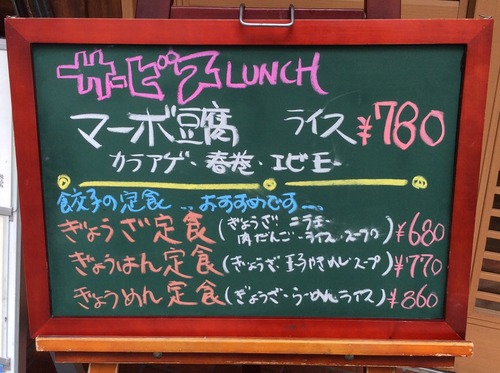 サービスLUNCH
マーボ豆腐 ライス ¥780
カラアゲ・春巻・エビモー
餃子の定食...おすすめです...
ぎょうざ定食(ぎょうざ・ニラモー 肉だんご・ライス・スープ)¥680
ぎょうはん定食(ぎょうざ・玉子やきめしスープ)¥770
ぎょうめん定食(ぎょうざ・らーめんライス)¥860